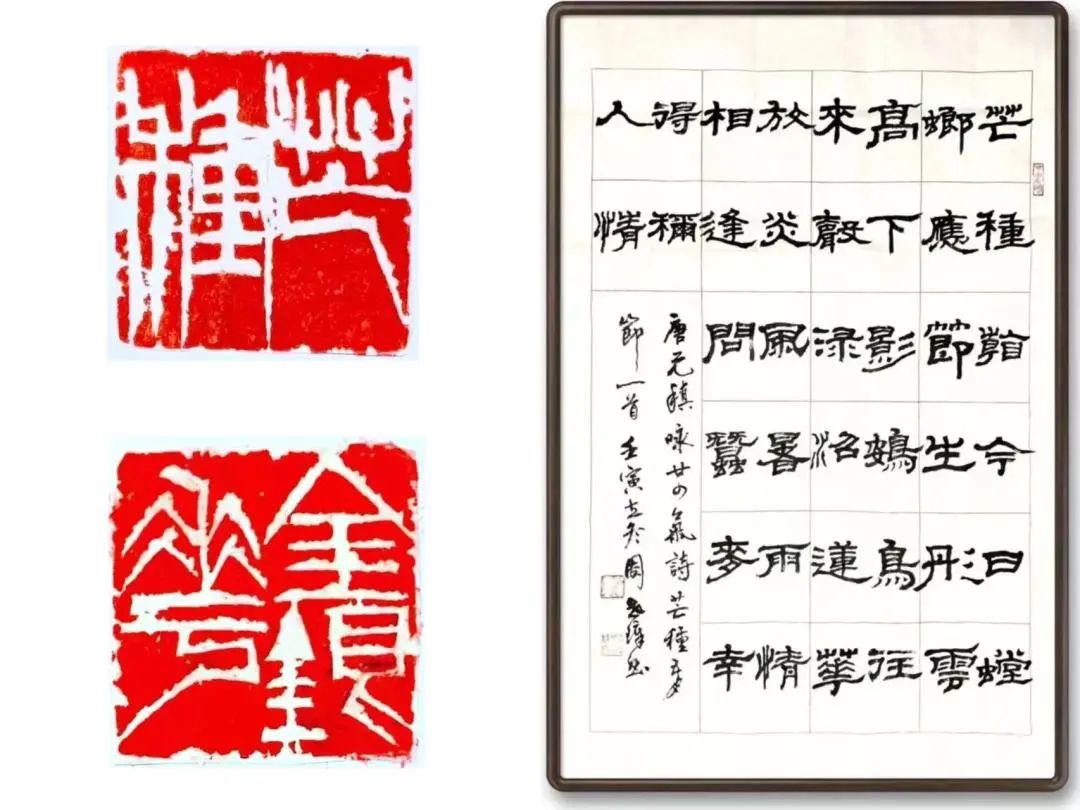 芒種
芒種看今日螳
螂應節生彤雲
高下影鴳鳥往
來聲渌沼蓮華
放炎風暑雨情
相逢問蠶麥幸
得稱
人情
唐元稹咏廿四氣詩芒種五月
節一首壬寅立冬周